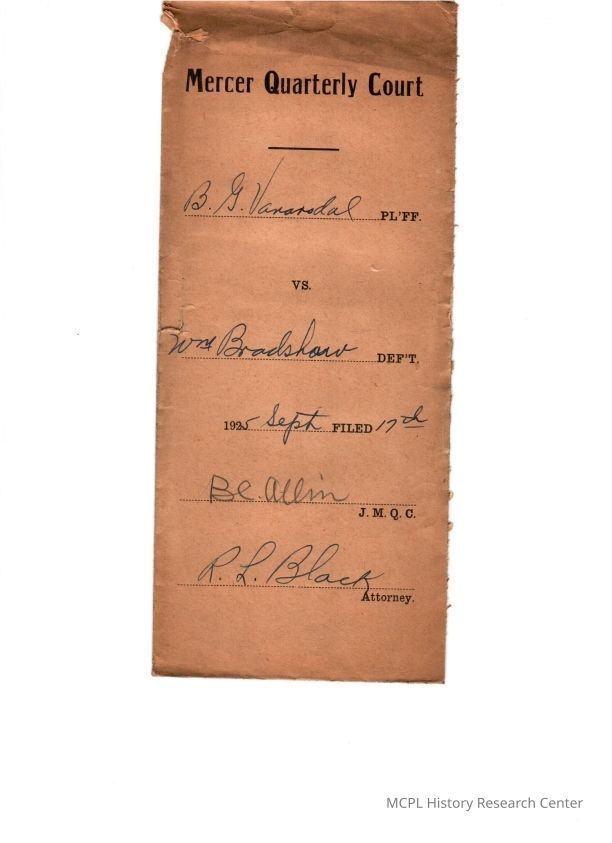 Mercer Quarterly Court
B. G. Vanarsdal PL'FF.
VS.
Wm Bradshaw DEF'T.
1925 Sept FILED 17th
B.C. Allin
J. M. Q. C.
R. L. Black
Attorney.
MCPL History Research Center